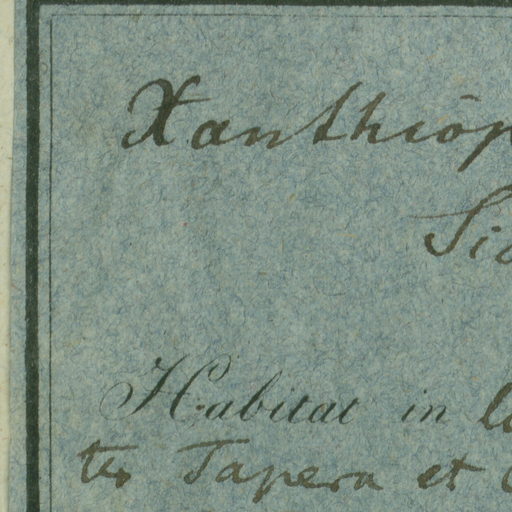 Xanthiop
Sid
Habitat in
ter Tapera et